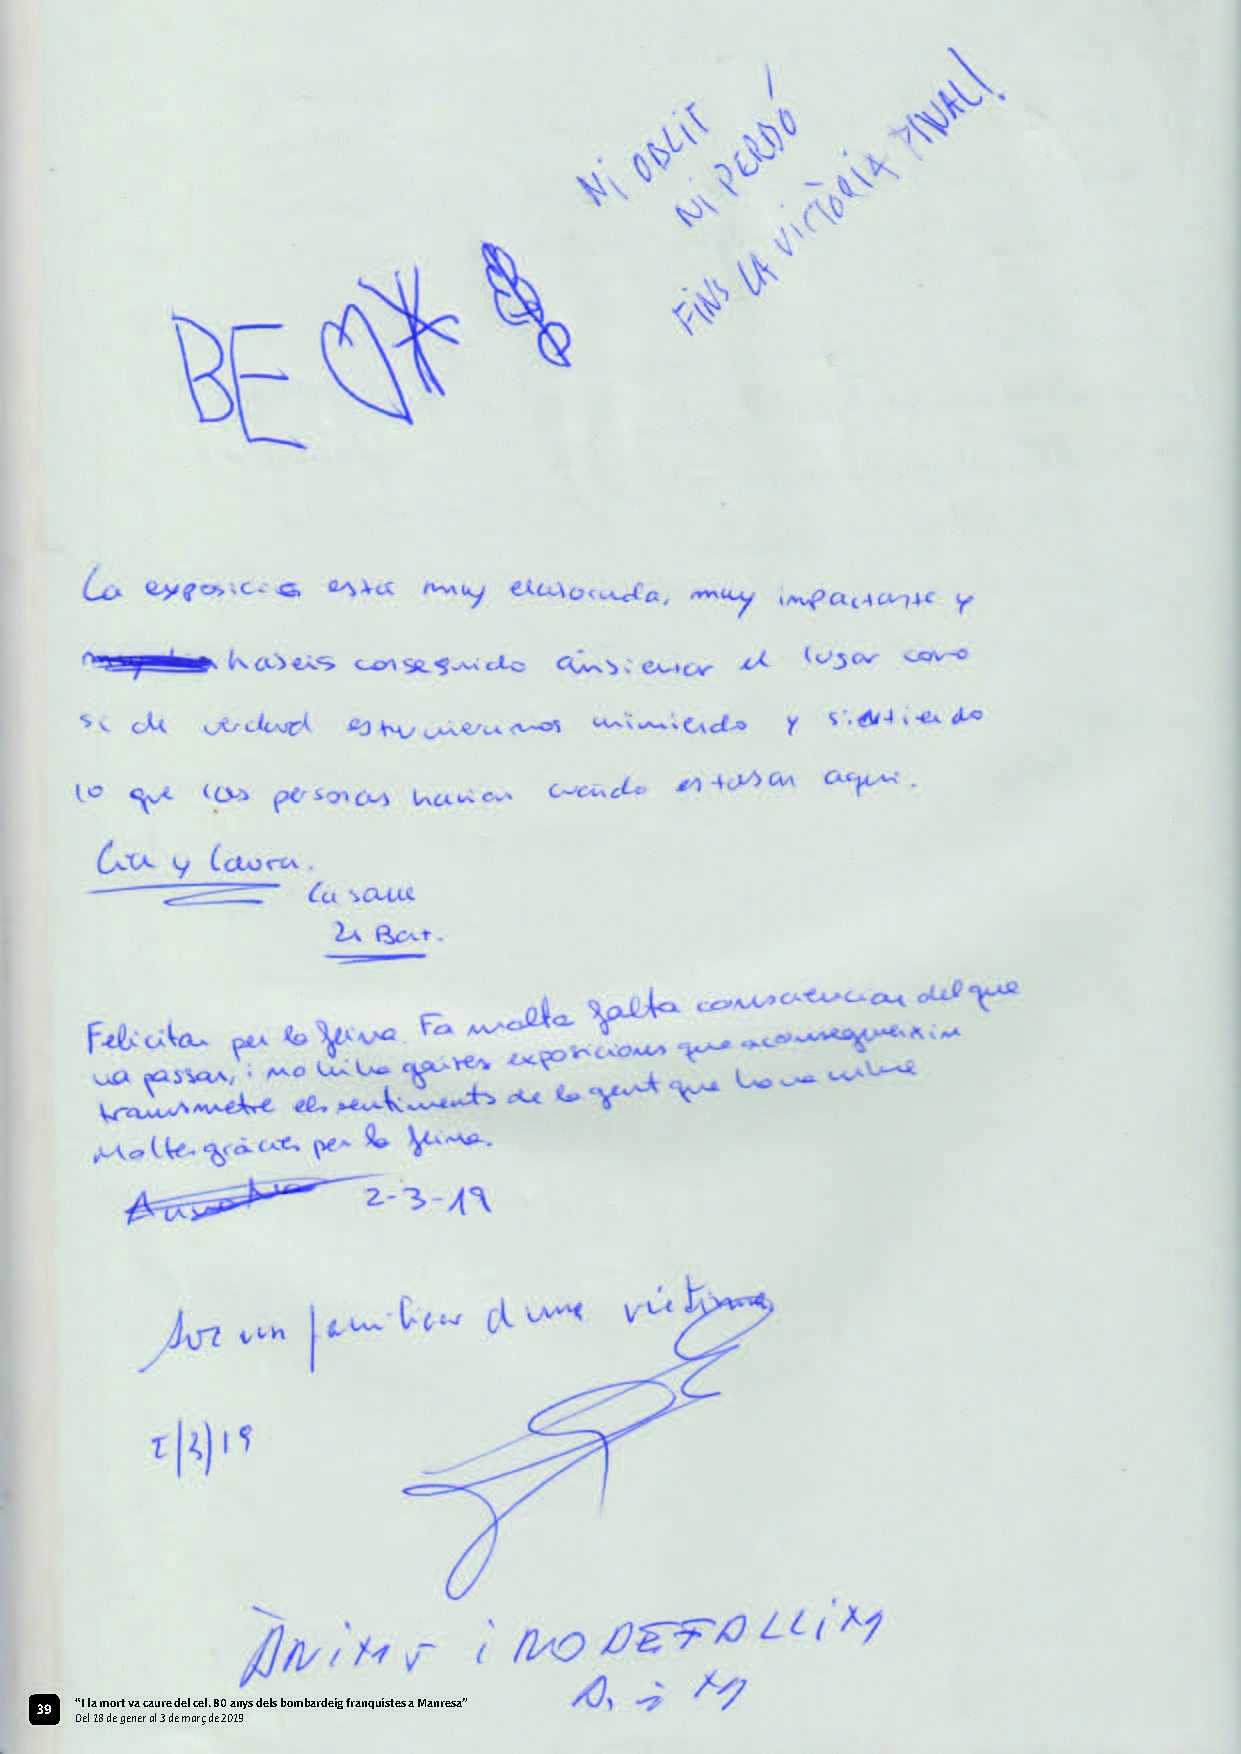 NI OBLIT
NI PERDÓ!
FINS LA VICTÒRIA FINAL!
BE
La exposició está muy elaborada, muy impactante y
habeis conseguido ambientar el lugar como
si de verdad estuvieramos viviendo y sintiendo
lo que las personas havian cuando estaban aqui.
Lia y Laura.
La Salle
2n Bat.
Felicitar per la feina. Fa molta falta conscienciar del que
va passar, i no hi ha gaires exposicions que aconsegueixin
transmetre els sentiments de la gent que ho va viure.
Moltes gràcies per la feina.
2-3-19
Soc un familiar d'una víctima
2/3/19
ÀNIMS i NO DEFALLIM
39
"I la mort va caure del cel. 80 anys dels bombardeig franquistes a Manresa"
Del 18 de gener al 3 de març de 2019